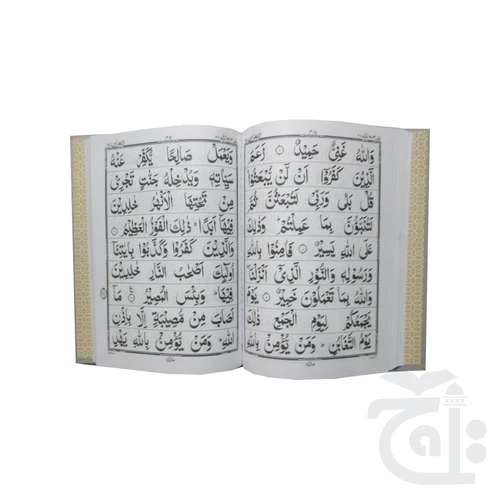 وَاللّٰهُ غَنِیٌّ حَمِیْدٌ ۞ زَعَمَ
الَّذِیْنَ کَفَرُوْۤا اَنْ لَّنْ یُّبْعَثُوْا ؕ
قُلْ بَلٰی وَرَبِّیْ لَتُبْعَثُنَّ ثُمَّ
لَتُنَبَّؤُنَّ بِمَا عَمِلْتُمْ ؕ وَذٰلِکَ
عَلَی اللّٰهِ یَسِیْرٌ ۞ فَاٰمِنُوْا بِاللّٰهِ
وَرَسُوْلِهٖ وَالنُّوْرِ الَّذِیْۤ اَنْزَلْنَا ؕ
وَاللّٰهُ بِمَا تَعْمَلُوْنَ خَبِیْرٌ ۞ یَوْمَ
یَجْمَعُکُمْ لِیَوْمِ الْجَمْعِ ذٰلِکَ
یَوْمُ التَّغَابُنِ ؕ وَمَنْ یُّؤْمِنْۢ بِاللّٰهِ
وَیَعْمَلْ صَالِحًا یُّکَفِّرْ عَنْهُ
سَیِّاٰتِهٖ وَیُدْخِلْهُ جَنّٰتٍ تَجْرِیْ
مِنْ تَحْتِهَا الْاَنْهٰرُ خٰلِدِیْنَ
فِیْهَاۤ اَبَدًا ؕ ذٰلِکَ الْفَوْزُ الْعَظِیْمُ ۞
وَالَّذِیْنَ کَفَرُوْا وَکَذَّبُوْا بِاٰیٰتِنَاۤ
اُولٰٓئِکَ اَصْحٰبُ النَّارِ خٰلِدِیْنَ
فِیْهَا ؕ وَبِئْسَ الْمَصِیْرُ ۞ مَاۤ
اَصَابَ مِنْ مُّصِیْبَةٍ اِلَّا بِاِذْنِ
اللّٰهِ ؕ وَمَنْ یُّؤْمِنْۢ بِاللّٰهِ یَهْدِ